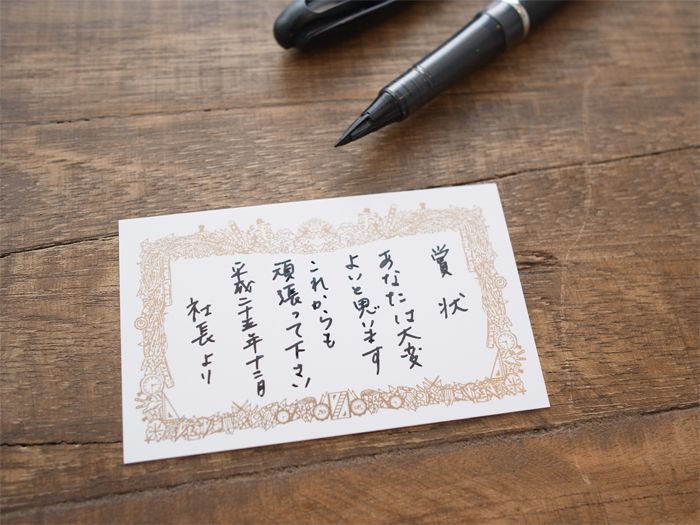 賞状
あなたは大変
よいと思います
これからも
頑張って下さい
平成二十五年十二月
社長より